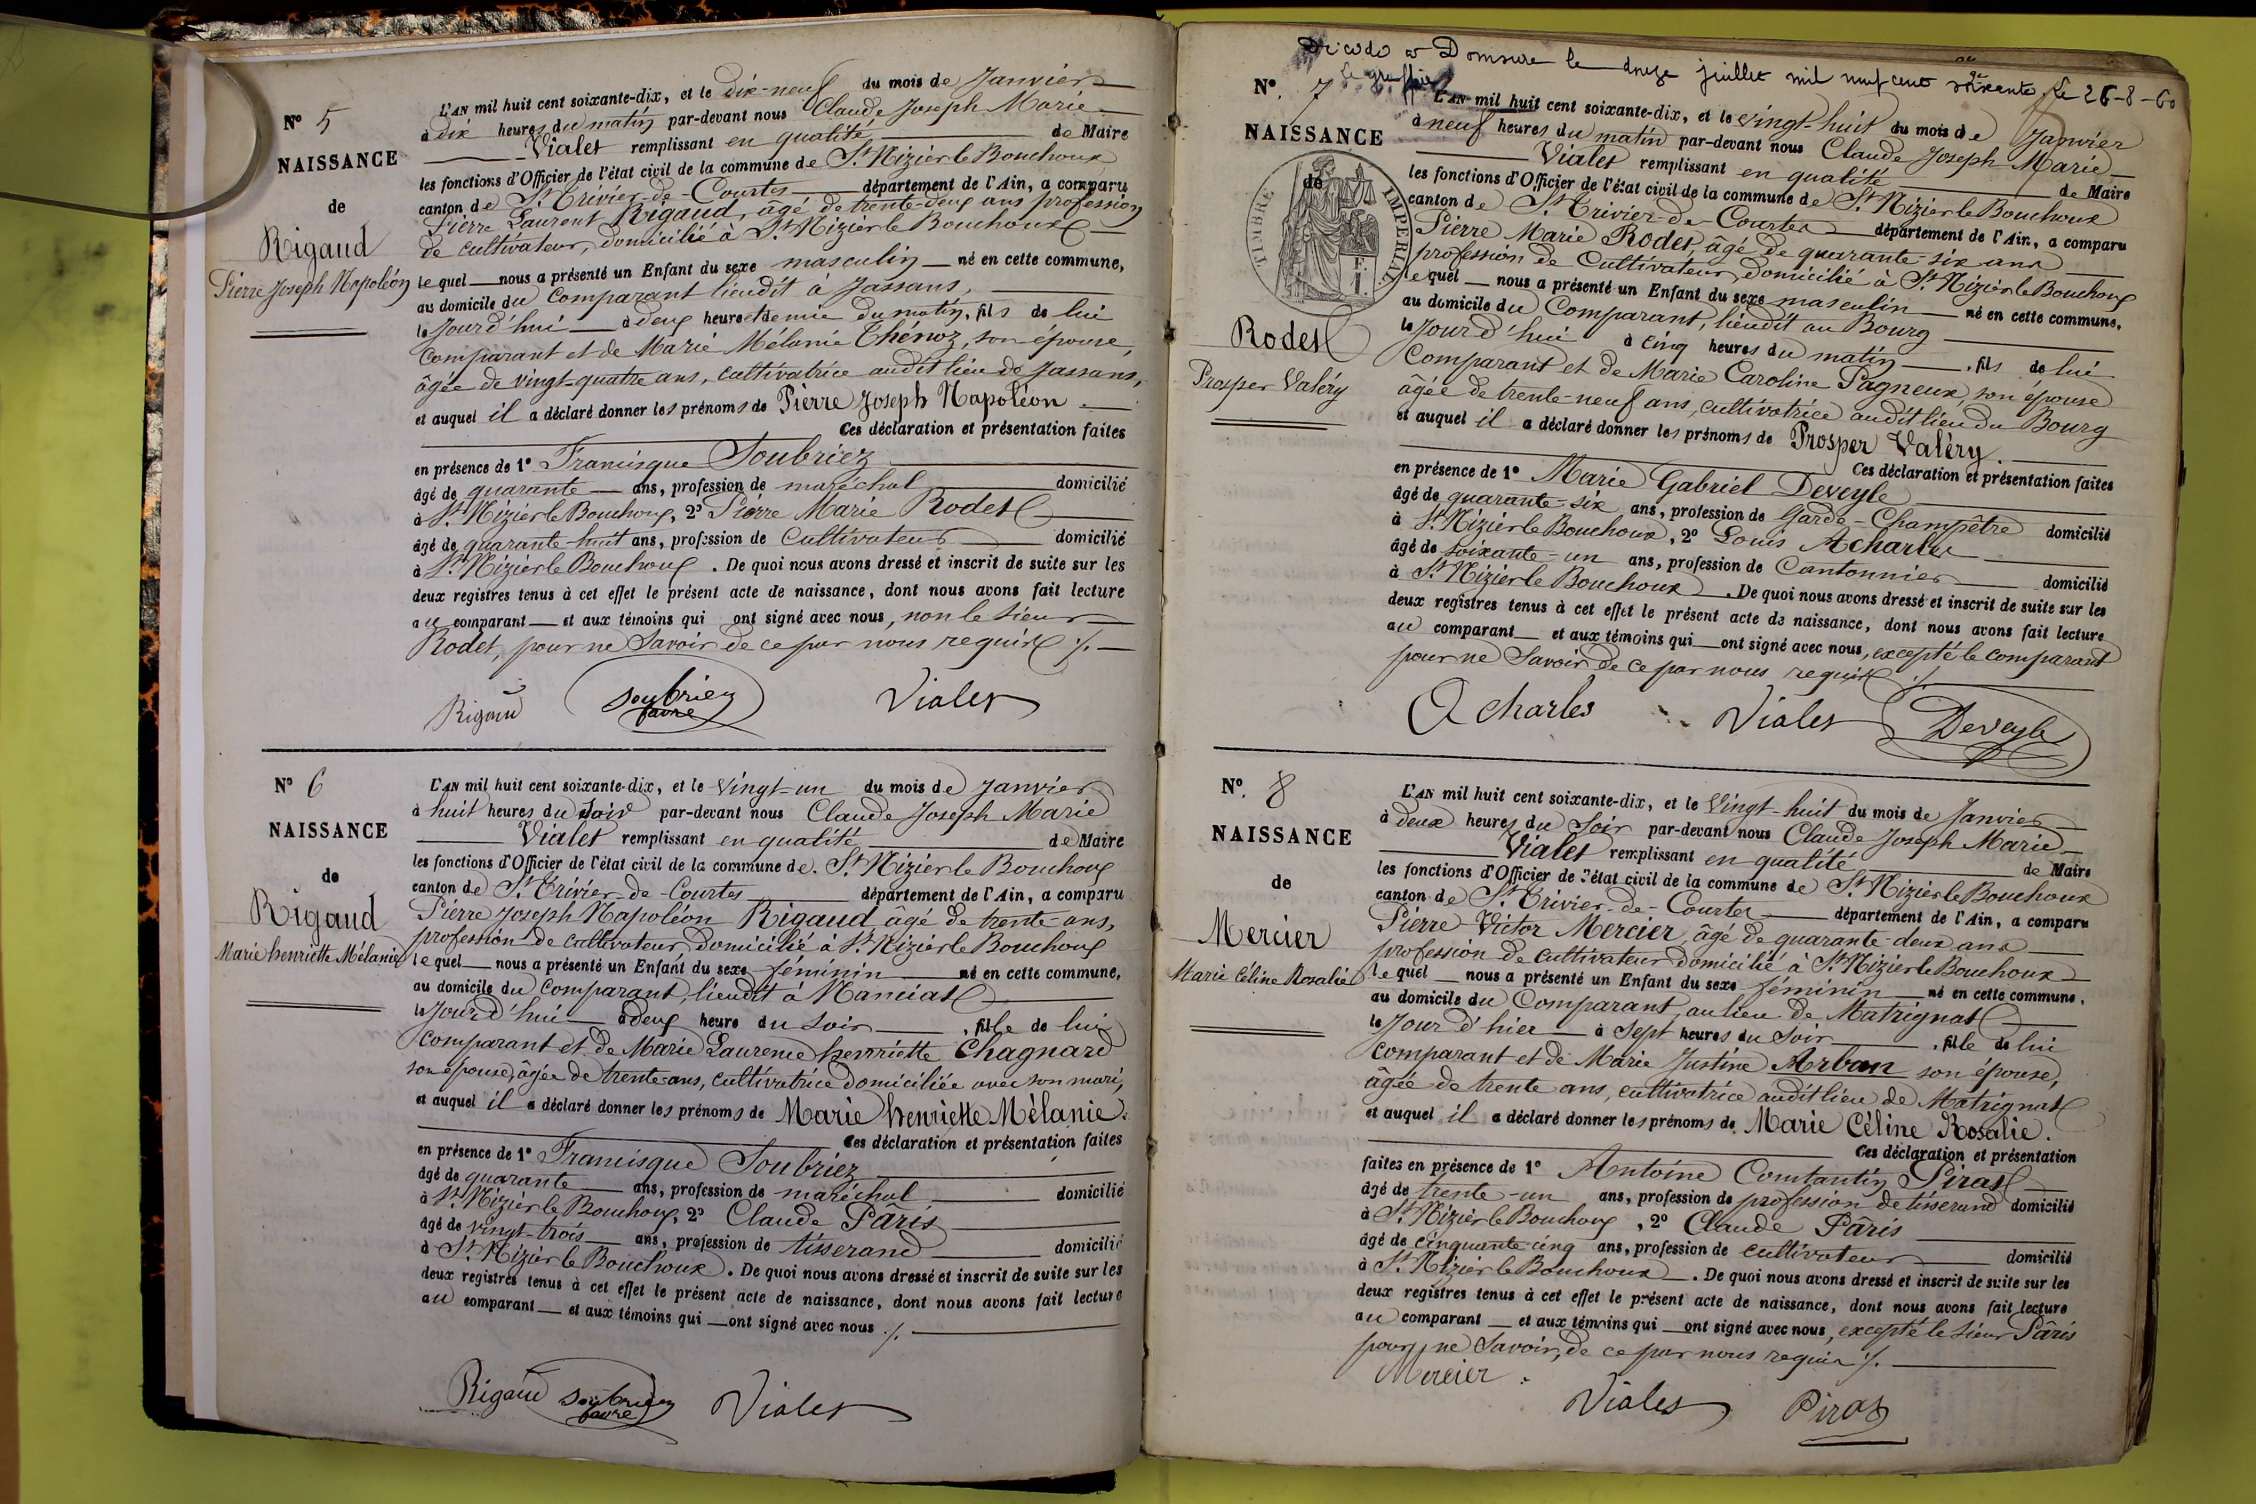 Nº 5
NAISSANCE
de
Rigaud
Pierre Joseph Napoléon
L'AN mil huit cent soixante-dix, et le dix-neuf du mois de Janvier
à dix heures du matin par-devant nous Claude Joseph Marie
Vialet remplissant en qualité de Maire
les fonctions d'Officier de l'état civil de la commune de St Nizier le Bouchoux
canton de St Trivier-de-Courtes département de l'Ain, a comparu
Pierre Laurent Rigaud, âgé de trente-deux ans profession
de cultivateur, domicilié à St Nizier le Bouchoux
lequel nous a présenté un Enfant du sexe masculin né en cette commune,
au domicile du comparant lieudit à Jassans,
le Jourd'hui à deux heures et demie du matin, fils de lui
comparant et de Marie Mélanie Thénoz, son épouse,
âgée de vingt-quatre ans, cultivatrice audit lieu de Jassans,
et auquel il a déclaré donner les prénoms de Pierre Joseph Napoléon
Ces déclaration et présentation faites
en présence de 1º Francisque Soubriez
âgé de quarante ans, profession de maréchal domicilié
à St Nizier le Bouchoux, 2º Pierre Marie Rodet
âgé de quarante-huit ans, profession de Cultivateur domicilié
à St Nizier le Bouchoux. De quoi nous avons dressé et inscrit de suite sur les
deux registres tenus à cet effet le présent acte de naissance, dont nous avons fait lecture
au comparant et aux témoins qui ont signé avec nous, non le sieur
Rodet, pour ne Savoir de ce par nous requis ./.
Rigaud Soubriez favre Vialet
Nº 6
NAISSANCE
de
Rigaud
Marie henriette Mélanie
L'AN mil huit cent soixante-dix, et le Vingt-un du mois de Janvier
à huit heures du Soir par-devant nous Claude Joseph Marie
Vialet remplissant en qualité de Maire
les fonctions d'Officier de l'état civil de la commune de St Nizier le Bouchoux
canton de St Trivier-de-Courtes département de l'Ain, a comparu
Pierre Joseph Napoléon Rigaud âgé de trente-ans,
profession de cultivateur, domicilié à St Nizier le Bouchoux
lequel nous a présenté un Enfant du sexe féminin né en cette commune,
au domicile du Comparant, lieudit à Manciat
le Jourd'hui à deux heure du soir, fille de lui
comparant et de Marie Laurence henriette Chagnard
son épouse, âgée de trente ans, cultivatrice domiciliée avec son mari,
et auquel il a déclaré donner les prénoms de Marie henriette Mélanie.
Ces déclaration et présentation faites
en présence de 1º Francisque Soubriez
âgé de quarante ans, profession de maréchal domicilié
à St Nizier le Bouchoux, 2º Claude Pâris
âgé de vingt-trois ans, profession de tisserand domicilié
à St Nizier le Bouchoux. De quoi nous avons dressé et inscrit de suite sur les
deux registres tenus à cet effet le présent acte de naissance, dont nous avons fait lecture
au comparant et aux témoins qui ont signé avec nous ./.
Rigaud Soubriez favre Vialet
Décédé à Domsure le douze juillet mil neuf cent soixante. Le 26-8-60
Le greffier
Nº. 7
NAISSANCE
de
TIMBRE IMPERIAL
Rodet
Prosper Valéry
L'AN mil huit cent soixante-dix, et le Vingt-huit du mois de Janvier
à neuf heures du matin par-devant nous Claude Joseph Marie
Vialet remplissant en qualité de Maire
les fonctions d'Officier de l'état civil de la commune de St Nizier le Bouchoux
canton de St Trivier-de-Courtes département de l'Ain, a comparu
Pierre Marie Rodet, âgé de quarante-six ans
profession de Cultivateur, domicilié à St Nizier le Bouchoux
lequel nous a présenté un Enfant du sexe masculin né en cette commune,
au domicile du Comparant, lieudit au Bourg
le Jourd'hui à cinq heures du matin, fils de lui
Comparant et de Marie Caroline Pagneux, son épouse
âgée de trente-neuf ans, cultivatrice audit lieu du Bourg
et auquel il a déclaré donner les prénoms de Prosper Valéry.
Ces déclaration et présentation faites
en présence de 1º Marie Gabriel Deveyle
âgé de quarante-six ans, profession de Garde-Champêtre domicilié
à St Nizier le Bouchoux, 2º Louis Acharles
âgé de soixante-un ans, profession de Cantonnier domicilié
à St Nizier le Bouchoux. De quoi nous avons dressé et inscrit de suite sur les
deux registres tenus à cet effet le présent acte de naissance, dont nous avons fait lecture
au comparant et aux témoins qui ont signé avec nous, excepté le comparant
pour ne Savoir de ce par nous requis ./.
Acharles Vialet Deveyle
Nº. 8
NAISSANCE
de
Mercier
Marie Céline Rosalie
L'AN mil huit cent soixante-dix, et le Vingt-huit du mois de Janvier
à deux heures du Soir par-devant nous Claude Joseph Marie
Vialet remplissant en qualité de Maire
les fonctions d'Officier de l'état civil de la commune de St Nizier le Bouchoux
canton de St Trivier-de-Courtes département de l'Ain, a comparu
Pierre Victor Mercier, âgé de quarante-deux ans
profession de Cultivateur domicilié à St Nizier le Bouchoux
lequel nous a présenté un Enfant du sexe féminin né en cette commune,
au domicile du Comparant, au lieu de Matrignat
le Jour d'hier à Sept heures du Soir, fille de lui
comparant et de Marie Justine Arban son épouse,
âgée de trente ans, cultivatrice audit lieu de Matrignat
et auquel il a déclaré donner les prénoms de Marie Céline Rosalie.
Ces déclaration et présentation
faites en présence de 1º Antoine Constantin Piras
âgé de trente-un ans, profession de profession de tisserand domicilié
à St Nizier le Bouchoux, 2º Claude Pâris
âgé de cinquante-cinq ans, profession de cultivateur domicilié
à St Nizier le Bouchoux. De quoi nous avons dressé et inscrit de suite sur les
deux registres tenus à cet effet le présent acte de naissance, dont nous avons fait lecture
au comparant et aux témoins qui ont signé avec nous, excepté le Sieur Pâris
pour ne Savoir, de ce par nous requis ./.
Mercier Vialet Piras